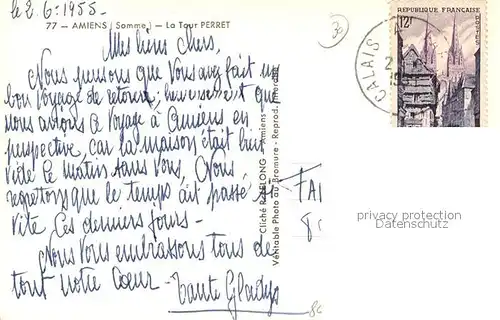 le 2.6.1955.
77 - AMIENS (Somme) - La Tour PERRET
Mes biens Chers,
Nous pensons que Vous avez fait un
bon Voyage de retour, heureusement que
nous avions ce Voyage à Amiens en
perspective, car la maison était bien
vide le matin sans vous, Nous
regrettons que le temps ait passé si
vite ces derniers jours -
Nous Vous embrassons tous de
tout notre Cœur -
Tante Gladys
Cliché - Amiens
Véritable Photo au Bromure - Reprod. interdite
REPUBLIQUE FRANÇAISE
12F
CALAIS
FAI
privacy protection
Datenschutz